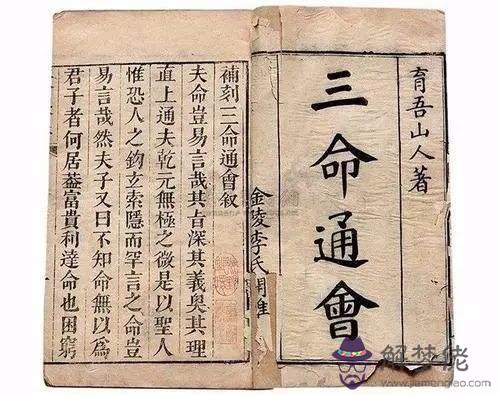 育吾山人著
三命通會
金陵李氏
補刻三命通會叙
夫命豈易言哉其旨深其義奥其理
直上通夫乾元無極之微是以聖人
惟恐人之鈎玄索隱而罕言之命豈
易言哉然夫子又曰不知命無以爲
君子者何居葢富貴利達命也困窮
解梦佬
www.jiemenglao.com